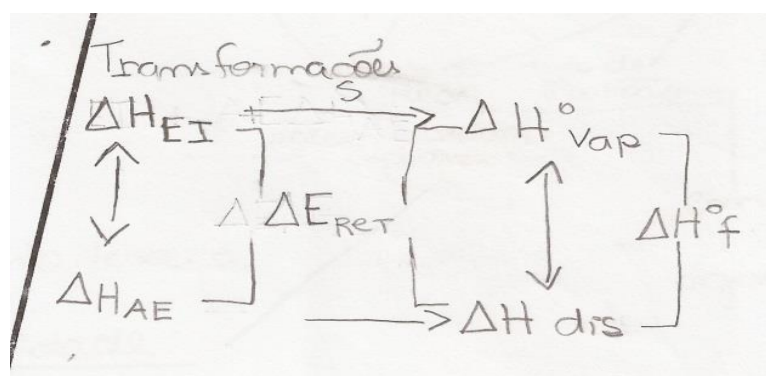 Transformações
S
ΔH_EI ΔH°vap
Δ ΔE_RET ΔH°f
ΔH_AE ΔH dis